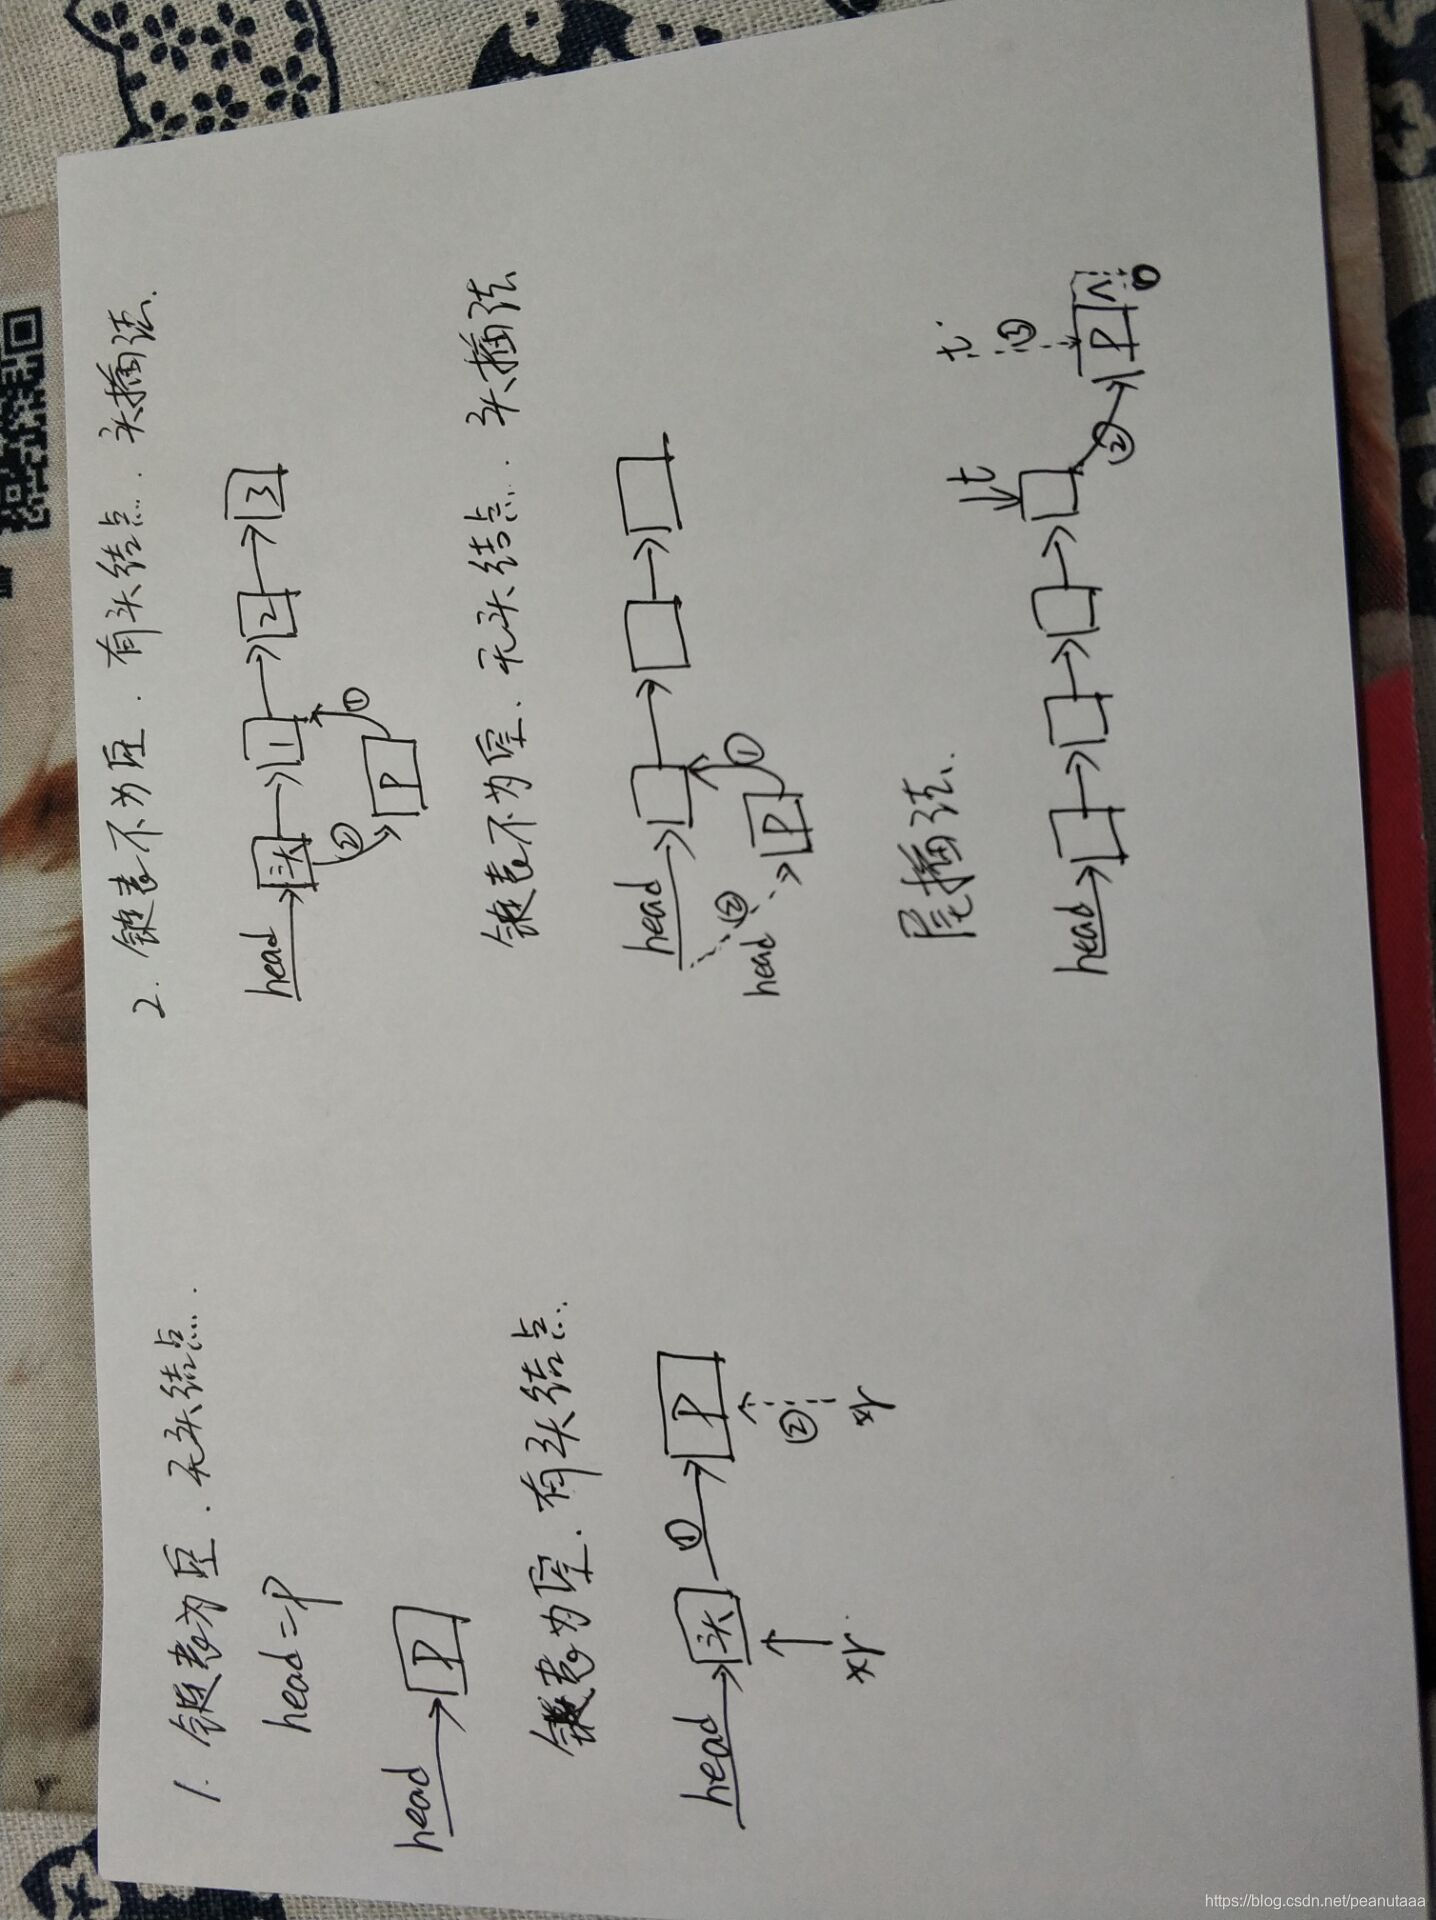 1. 链表为空. 无头结点.
head=P
head
P
链表为空. 有头结点.
head
头
①
P
xr
②
xr
2. 链表不为空. 有头结点. 头插法.
head
头
1
2
3
②
P
①
链表不为空. 无头结点. 头插法
head
head
②
P
①
尾插法.
head
t
②
t
③
P
^
①
https://blog.csdn.net/peanutaaa